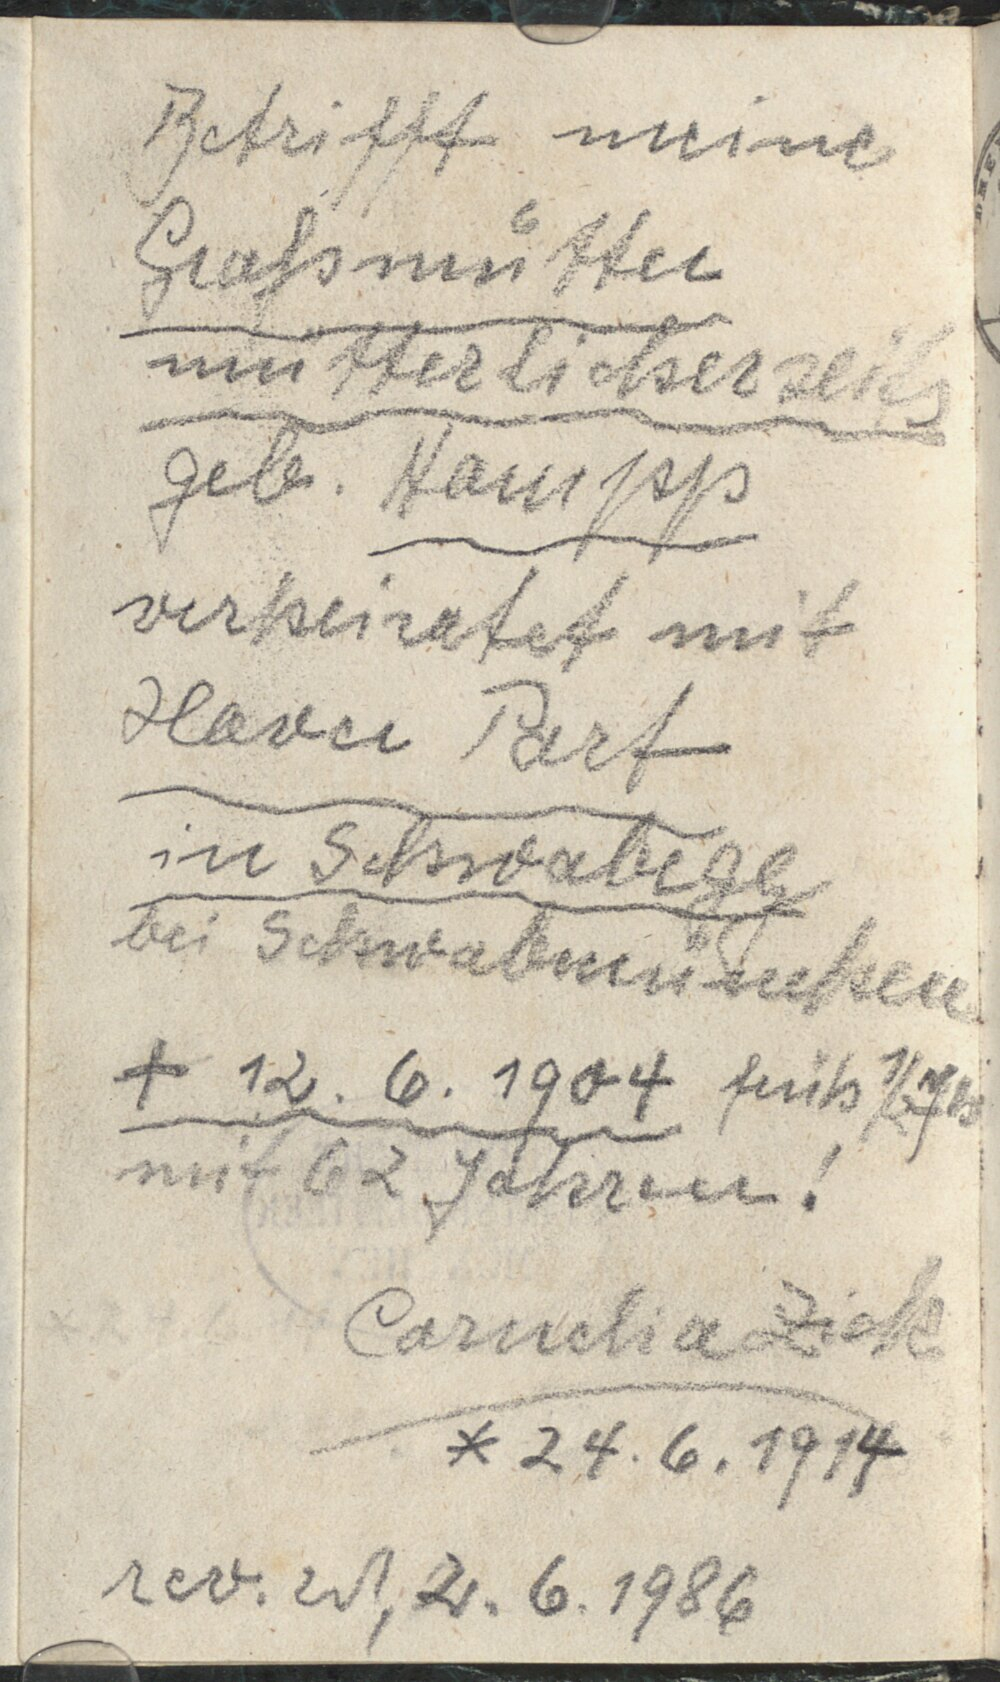 Betrifft meine
Großmutter
mütterlicherseits
geb. Haupp
verheiratet mit
Xaver Part
in Schwabegg
bei Schwabmünchen
+ 12. 6. 1904 früh
mit 62 Jahren!
Cornelia Zick
* 24. 6. 1914
rev. 2. 6. 1986